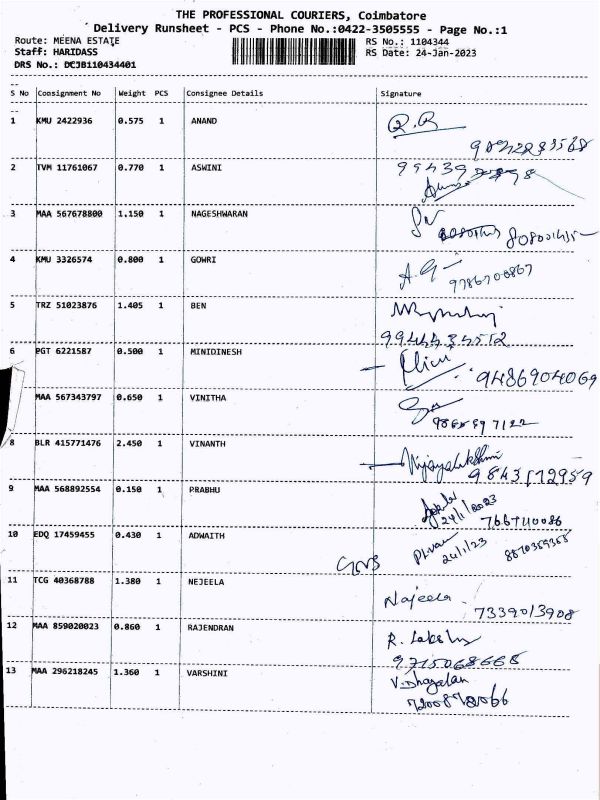 THE PROFESSIONAL COURIERS, Coimbatore
Delivery Runsheet - PCS - Phone No.:0422-3505555 - Page No.:1
Route: MEENA ESTATE
RS No.: 1104344
Staff: HARIDASS
RS Date: 24-Jan-2023
DRS No.: DCJB110434401
S No Consignment No Weight PCS Consignee Details Signature
1 KMU 2422936 0.575 1 ANAND
2 TVM 11761067 0.770 1 ASWINI
3 MAA 567678800 1.150 1 NAGESHWARAN
4 KMU 3326574 0.800 1 GOWRI
5 TRZ 51023876 1.405 1 BEN
9944434512
6 PGT 6221587 0.500 1 MINIDINESH
9486904069
MAA 567343797 0.650 1 VINITHA
8 BLR 415771476 2.450 1 VINANTH
Vijayalakshmi
9843512959
9 MAA 568892554 0.150 1 PRABHU
24/1/2023
10 EDQ 17459455 0.430 1 ADWAITH
24/1/23
11 TCG 40368788 1.380 1 NEJEELA
Najeela
7339013908
12 MAA 859020023 0.860 1 RAJENDRAN
R. Lakshmy
9715068668
13 MAA 296218245 1.360 1 VARSHINI